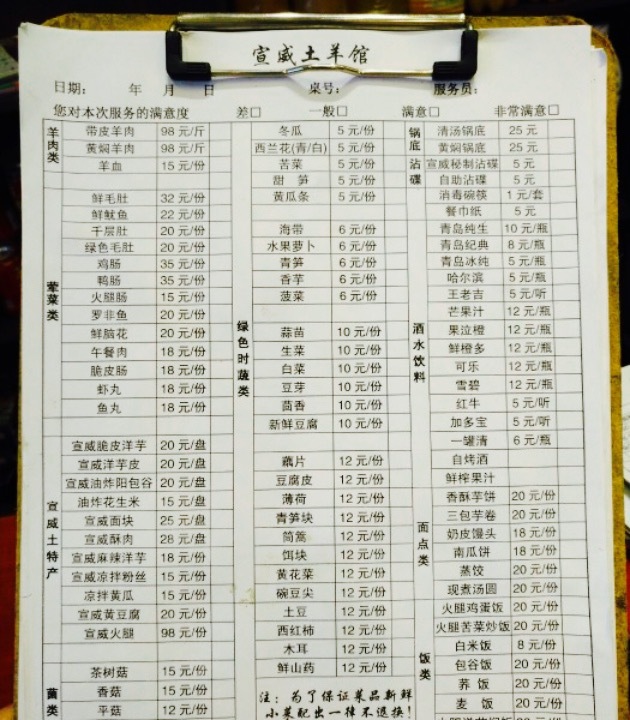 宣威土羊馆
日期： 年 月 日 桌号： 服务员：
您对本次服务的满意度 差□ 一般□ 满意□ 非常满意□
羊肉类
带皮羊肉 98 元/斤
黄焖羊肉 98 元/斤
羊血 15 元/份
荤菜类
鲜毛肚 32 元/份
鲜鱿鱼 22 元/份
千层肚 20 元/份
绿色毛肚 20 元/份
鸡肠 35 元/份
鸭肠 35 元/份
火腿肠 15 元/份
罗非鱼 20 元/份
鲜脑花 20 元/份
午餐肉 18 元/份
脆皮肠 18 元/份
虾丸 18 元/份
鱼丸 18 元/份
宣威土特产
宣威脆皮洋芋 20 元/盘
宣威洋芋皮 20 元/盘
宣威油炸阳包谷 20 元/盘
油炸花生米 15 元/盘
宣威面块 25 元/盘
宣威酥肉 28 元/盘
宣威麻辣洋芋 18 元/份
宣威凉拌粉丝 15 元/份
凉拌黄瓜 15 元/份
宣威黄豆腐 20 元/份
宣威火腿 98 元/份
菌类
茶树菇 15 元/份
香菇 15 元/份
平菇 12 元/份
绿色时蔬类
冬瓜 5 元/份
西兰花(青/白) 5 元/份
苦菜 5 元/份
甜 笋 5 元/份
黄瓜条 5 元/份
海带 6 元/份
水果萝卜 6 元/份
青笋 6 元/份
香芋 6 元/份
菠菜 6 元/份
蒜苗 10 元/份
生菜 10 元/份
白菜 10 元/份
豆芽 10 元/份
茴香 10 元/份
新鲜豆腐 10 元/份
藕片 12 元/份
豆腐皮 12 元/份
薄荷 12 元/份
青笋块 12 元/份
筒蒿 12 元/份
饵块 12 元/份
黄花菜 12 元/份
碗豆尖 12 元/份
土豆 12 元/份
西红柿 12 元/份
木耳 12 元/份
鲜山药 12 元/份
注：为了保证菜品新鲜
小菜配出一律不退换！
锅底
清汤锅底 25 元
黄焖锅底 25 元
沾碟
宣威秘制沾碟 5 元
自助沾碟 5 元
消毒碗筷 1 元/套
餐巾纸 5 元
酒水饮料
青岛纯生 10 元/瓶
青岛纪典 8 元/瓶
青岛冰纯 5 元/瓶
哈尔滨 5 元/瓶
王老吉 5 元/听
芒果汁 12 元/瓶
果泣橙 12 元/瓶
鲜橙多 12 元/瓶
可乐 12 元/瓶
雪碧 12 元/瓶
红牛 5 元/听
加多宝 5 元/听
一罐清 6 元/瓶
自烤酒
鲜榨果汁
面点类
香酥芋饼 20 元/份
三包芋卷 20 元/份
奶皮馒头 18 元/份
南瓜饼 18 元/份
蒸饺 20 元/份
现煮汤圆 20 元/份
饭类
火腿鸡蛋饭 20 元/份
火腿苦菜炒饭 20 元/份
白米饭 8 元/份
包谷饭 20 元/份
荞 饭 20 元/份
麦 饭 20 元/份